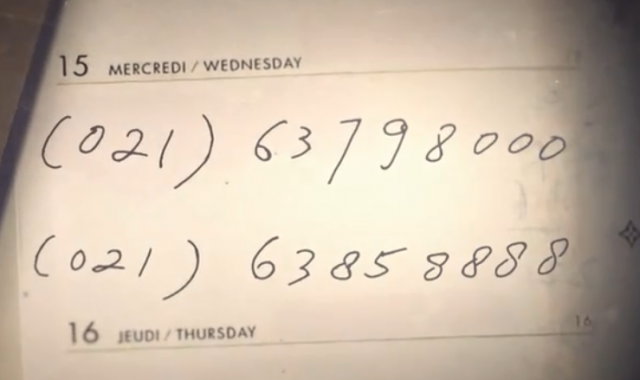 15 MERCREDI / WEDNESDAY
(021) 63798000
(021) 63858888
16 JEUDI / THURSDAY
16